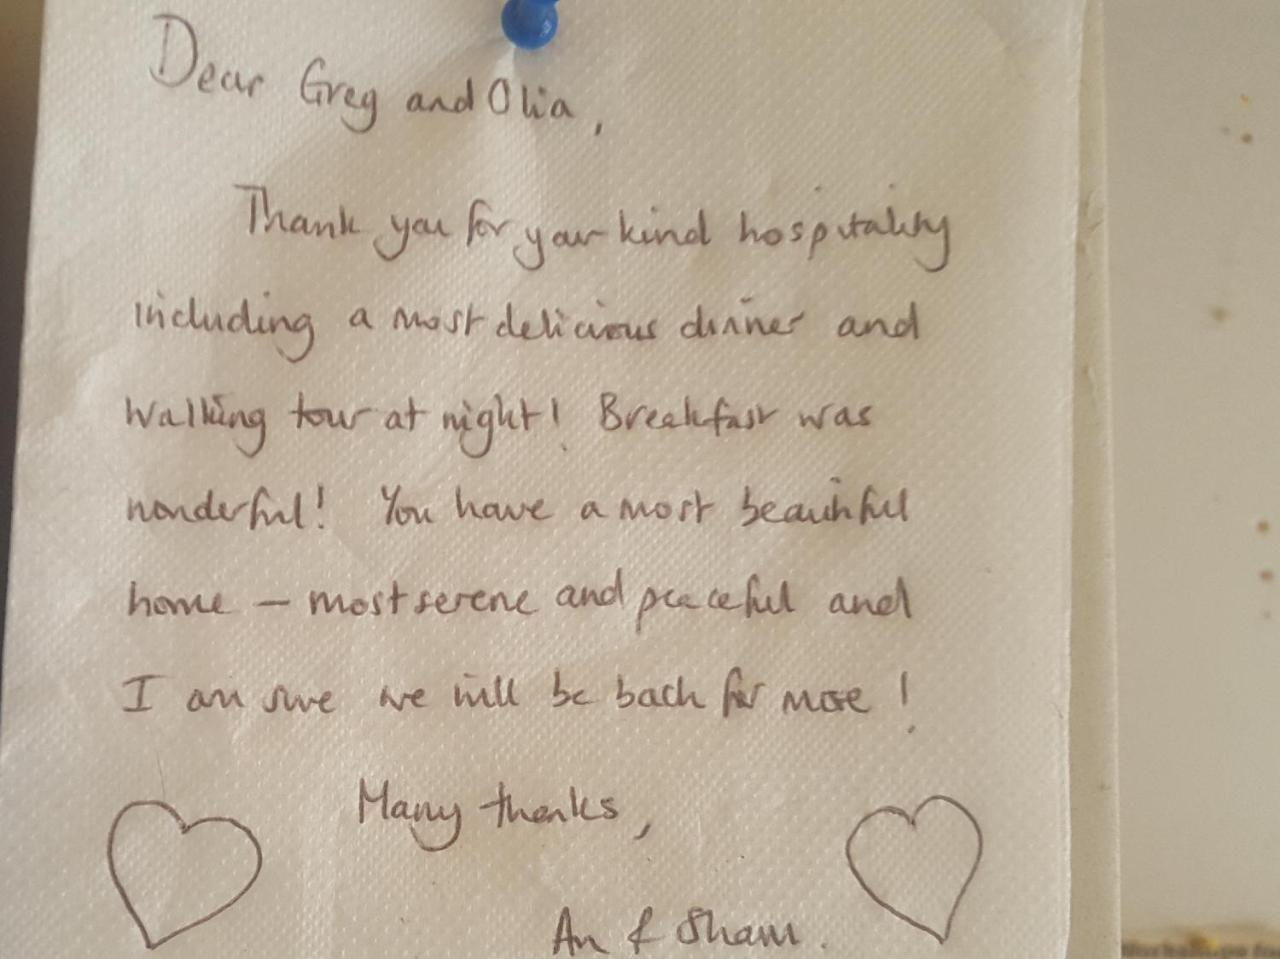 Dear Greg and Olia,
Thank you for your kind hospitality
including a most delicious dinner and
walking tour at night! Breakfast was
wonderful! You have a most beautiful
home – most serene and peaceful and
I am sure we will be back for more!
Many thanks,
An & Sham.